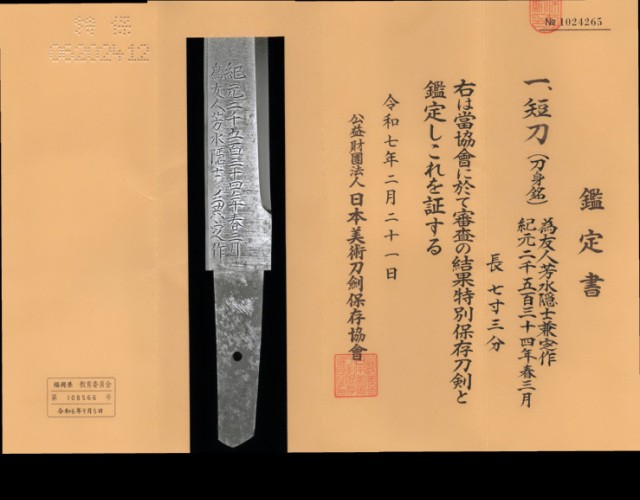 № 1024265
鑑定書
一、短刀(刀身銘)
為友人芳水隠士兼定作
紀元二千五百三十四年春三月
長 七寸三分
右は當協會に於て審査の結果特別保存刀剣と
鑑定しこれを証する
令和七年二月二十一日
公益財團法人日本美術刀劍保存協會
紀元二千五百三十四年春三月
為友人芳水隠士
作
特保
福岡県 教育委員会
第 108566 号
令和6年9月5日